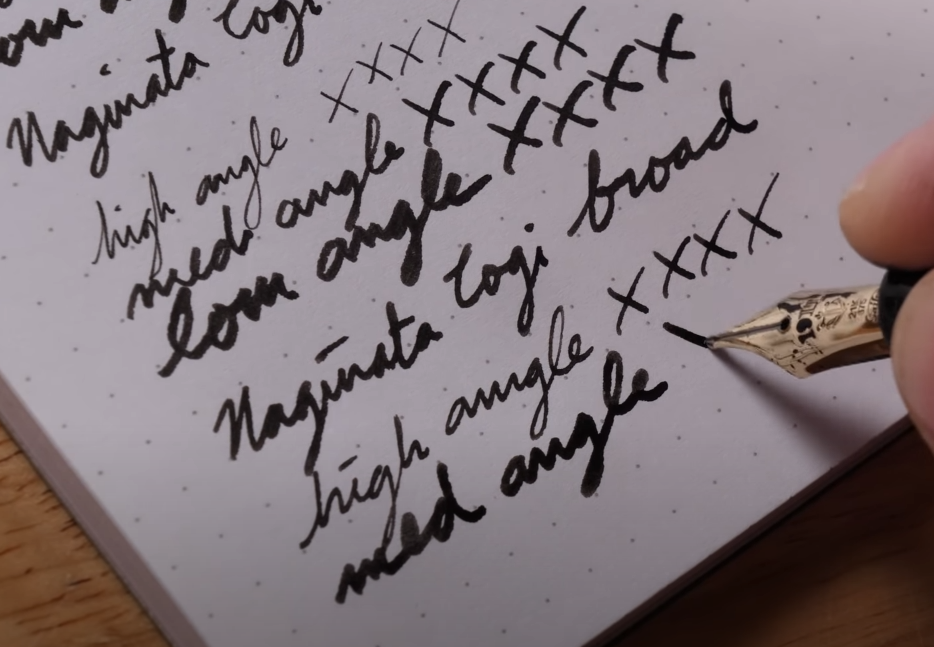 Naginata Togi
high angle xxxx
med angle xxxx
low angle xxxx
Naginata Togi broad
high angle xxxx
med angle